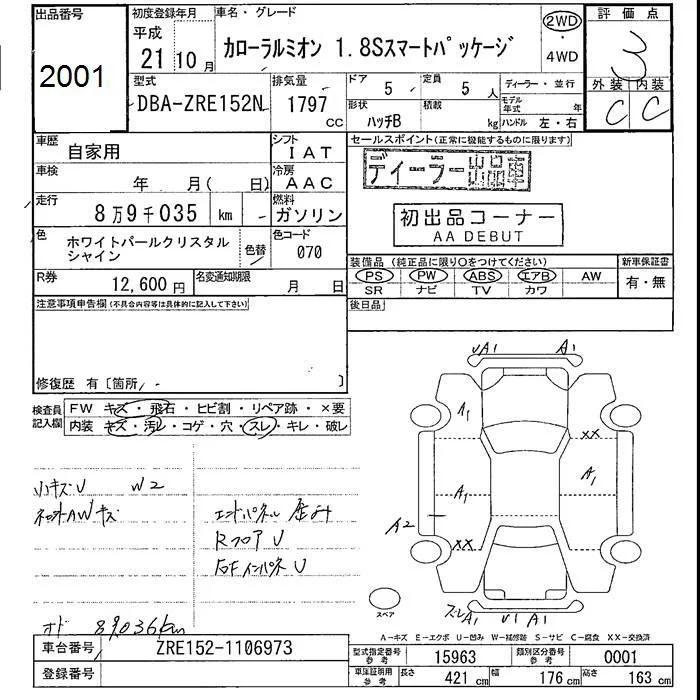 出品番号
2001
初度登録年月
平成
21年 10月
車名・グレード
カローラルミオン 1.8Sスマートパッケージ
2WD
・
4WD
評価点
3
外装 内装
C C
型式
DBA-ZRE152N
排気量
1797 CC
ドア 5
定員 5 人
形状 ハッチB
積載 kg
ディーラー・並行
モデル年式 年
ハンドル 左・右
車歴
自家用
シフト
IAT
車検
年 月( 日)
冷房
AAC
走行
8万9千035 km
燃料
ガソリン
色
ホワイトパールクリスタル
シャイン
色替
色コード
070
R券
12,600円
名変通知期限
月 日
セールスポイント(正常に機能するものに限ります)
ディーラー出品車
初出品コーナー
AA DEBUT
装備品 (純正品に限り○をつけてください)
新車保証書
PS PW ABS エアB AW
SR ナビ TV カワ
有・無
後日品
注意事項申告欄(不具合内容等は具体的に記入して下さい)
修復歴 有〔箇所 〕
検査員
記入欄
FW キズ・飛石・ヒビ割・リペア跡・×要
内装 キズ・汚れ・コゲ・穴・スレ・キレ・破レ
小キズU W2
AWキズ
エンドパネル 歪み
RフロアU
インパネU
オド 89036km
UA1 A1
A1
XX
A1
A1
A2
XX
スレA1 U1 A1
スペア
A-キズ E-エクボ U-凹み W-補修跡 S-サビ C-腐食 XX-交換済
車台番号
ZRE152-1106973
登録番号
型式指定番号
参考
15963
類別区分番号
参考
0001
車庫証明用
参考
長さ 421 cm
幅 176 cm
高さ 163 cm